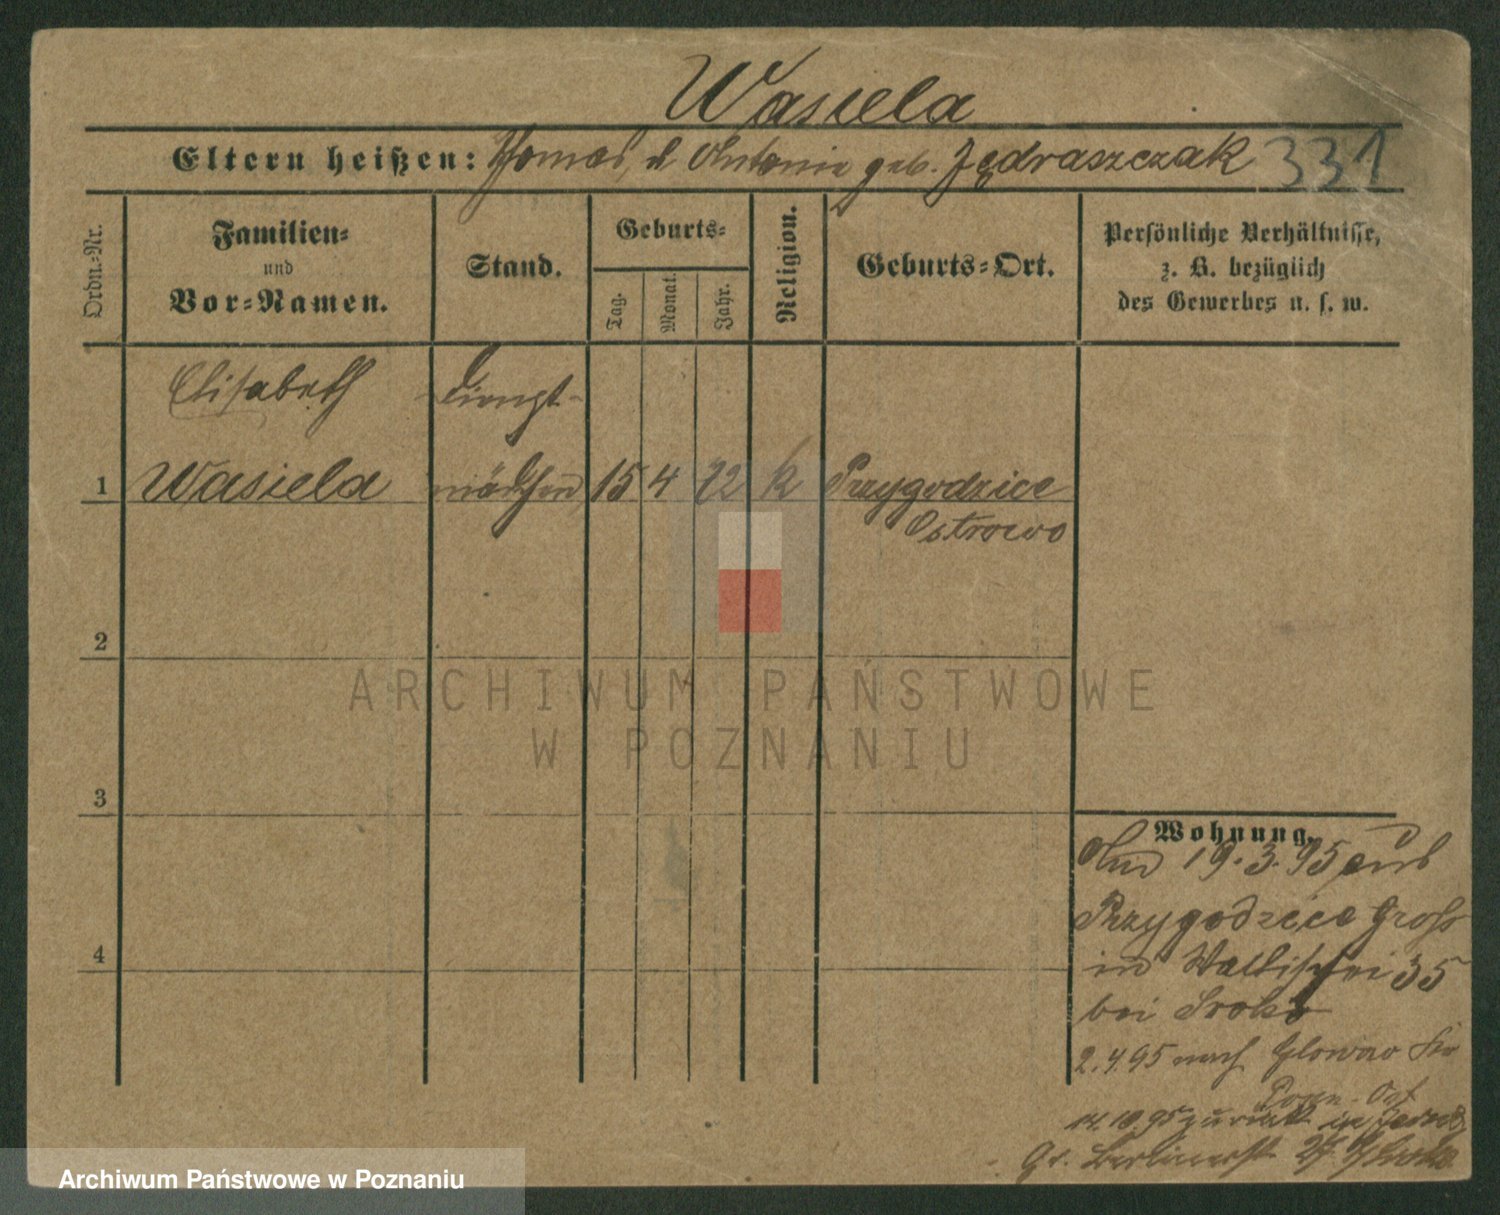 Wasiela
Eltern heißen: Thomas, u Antonie geb. Jędraszczak 331
Ordn.-Nr.
Familien- und Vor-Namen.
Stand.
Geburts-
Tag.
Monat.
Jahr.
Religion.
Geburts-Ort.
Persönliche Verhältnisse,
z. B. bezüglich
des Gewerbes u. s. w.
Elisabeth Dienst-
1 Wasiela mädchen 15 4 72 k Przygodzice
Ostrowo
2
ARCHIWUM PAŃSTWOWE
W POZNANIU
3
4
Wohnung.
19.3.95 aus
Przygodzice Gross
in Wallischei 35
bei Sroka
2.4.95 nach Glowno
Posen-Ost
14.10.95 zurück in
Gr. Berlinerst
Archiwum Państwowe w Poznaniu